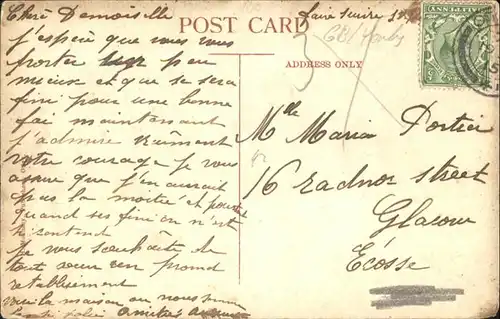 Chère Demoiselle
j'espère que vous vous
portez un peu
mieux et que se sera
fini pour une bonne
foi maintenant
j'admire vraiment
votre courage je vous
assure que j'en aurait
pas la moitié et pourtant
quand ses fini on n'est
si content
je vous souhaite de
tout cœur un prompt
retablissement
voici la maison ou nous
si jolie amitiés
POST CARD
faire suivre
ADDRESS ONLY
3
HALFPENNY
Mlle Maria Portier
16 radnor street
Glasow
Écosse